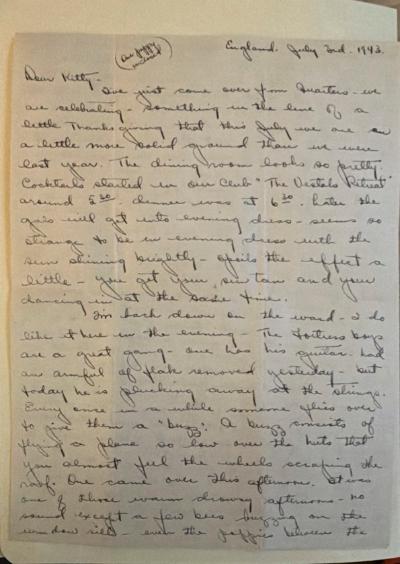 One poppy
enclosed
England. July 3rd. 1943.
Dear Kitty -
I've just come over from Quarters - we
are celebrating - something in the line of a
little Thanksgiving that this July we are on
a little more solid ground than we were
last year. The dining room looks so pretty.
Cocktails started in our Club "The Vestals Retreat"
around 5 30. dinner was at 6 30. Later the
gals will get into evening dress - seems so
strange to be in evening dress with the
sun shining brightly - spoils the effect a
little - you get your sun tan and your
dancing in at the same time.
I'm back down on the ward - I do
like it here in the evening - The Fortress boys
are a great gang - one has his guitar. had
an armful of flak removed yesterday - but
today he is plucking away at the strings.
Every once in a while someone flies over
to give them a "buzz". A buzz consists of
flying a plane so low over the huts that
you almost feel the wheels scraping the
roof. One came over this afternoon. It was
one of those warm drowsy afternoons - no
sound except a few bees buzzing on the
window sills - even the poppies between the